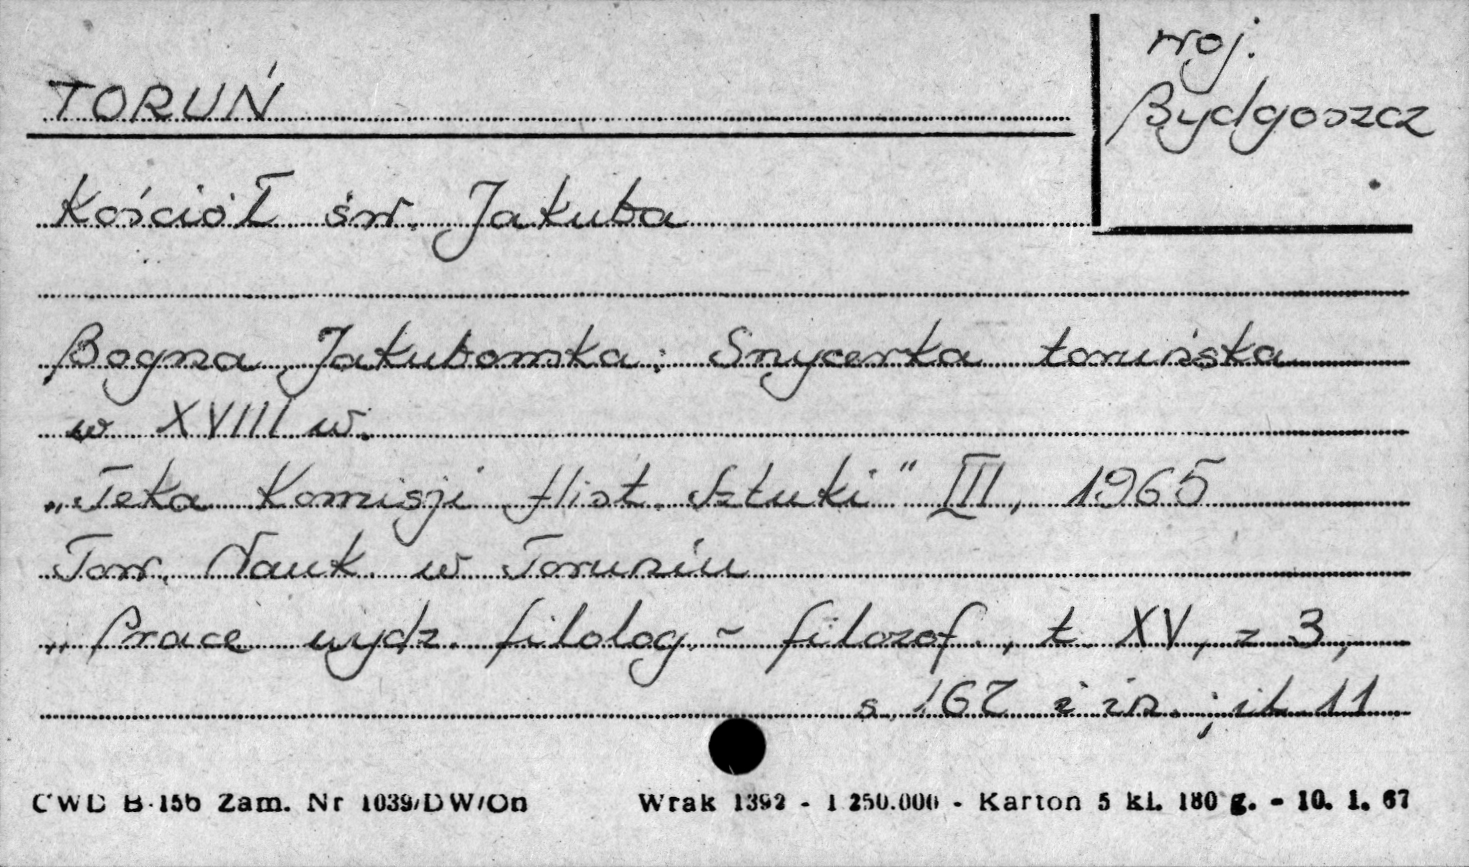 TORUŃ
woj.
Bydgoszcz
Kościół św. Jakuba
Bogna Jakubowska: Snycerka toruńska
w XVIII w.
„Teka Komisji Hist. Sztuki" III, 1965
Tow. Nauk. w Toruniu
„Prace wydz. filolog. - filozof., t. XV, z 3,
s. 167 i in. ; il. 11
CWD B-156 Zam. Nr 1039/DW/On Wrak 1392 - 1 250.000 - Karton 5 kl. 180 g. - 10. 1. 67